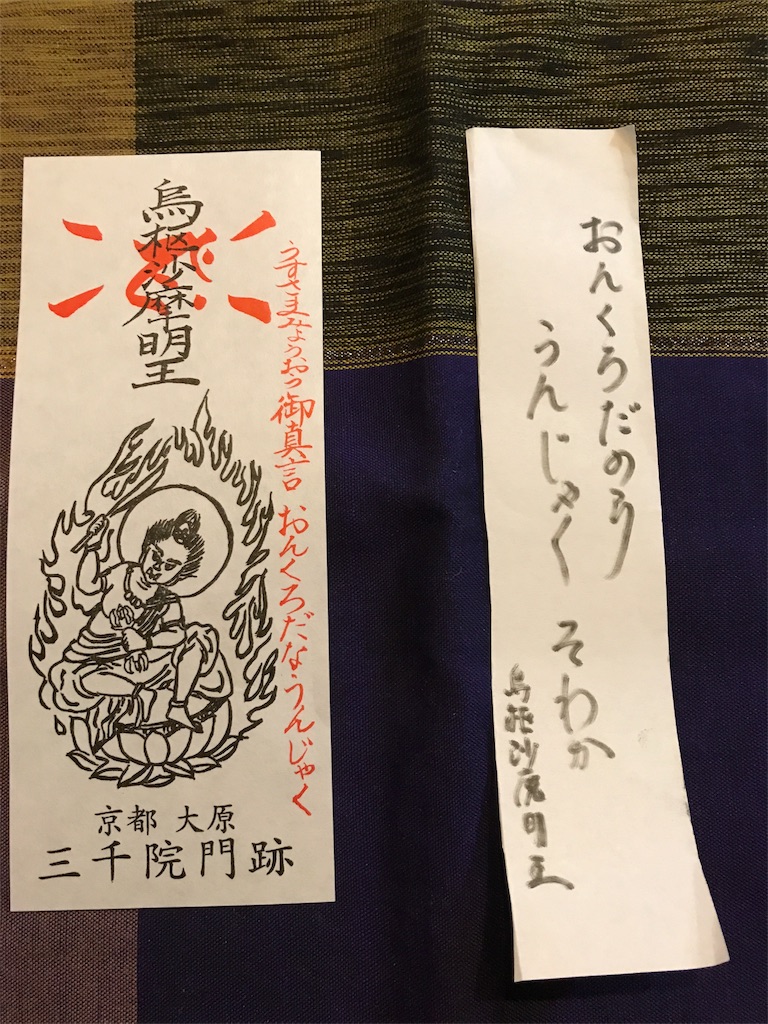 烏枢沙摩明王
うすさまみょうおう御真言 おんくろだなうんじゃく
京都 大原
三千院門跡
おんくろだのう
うんじゃく そわか
烏枢沙摩明王